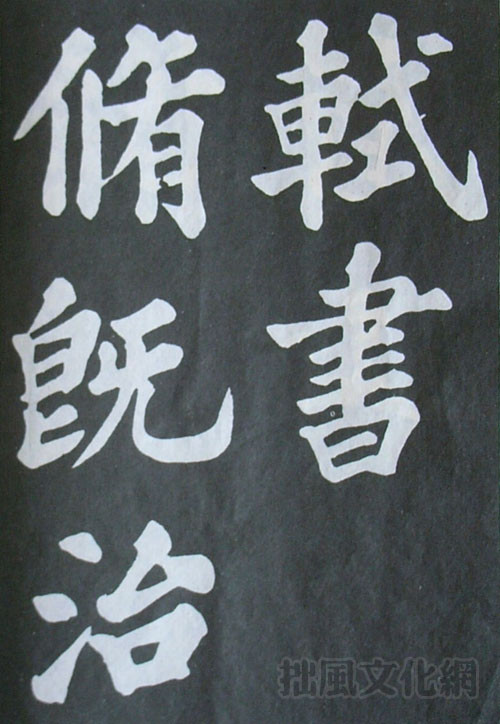 軾書
脩既治
拙風文化網